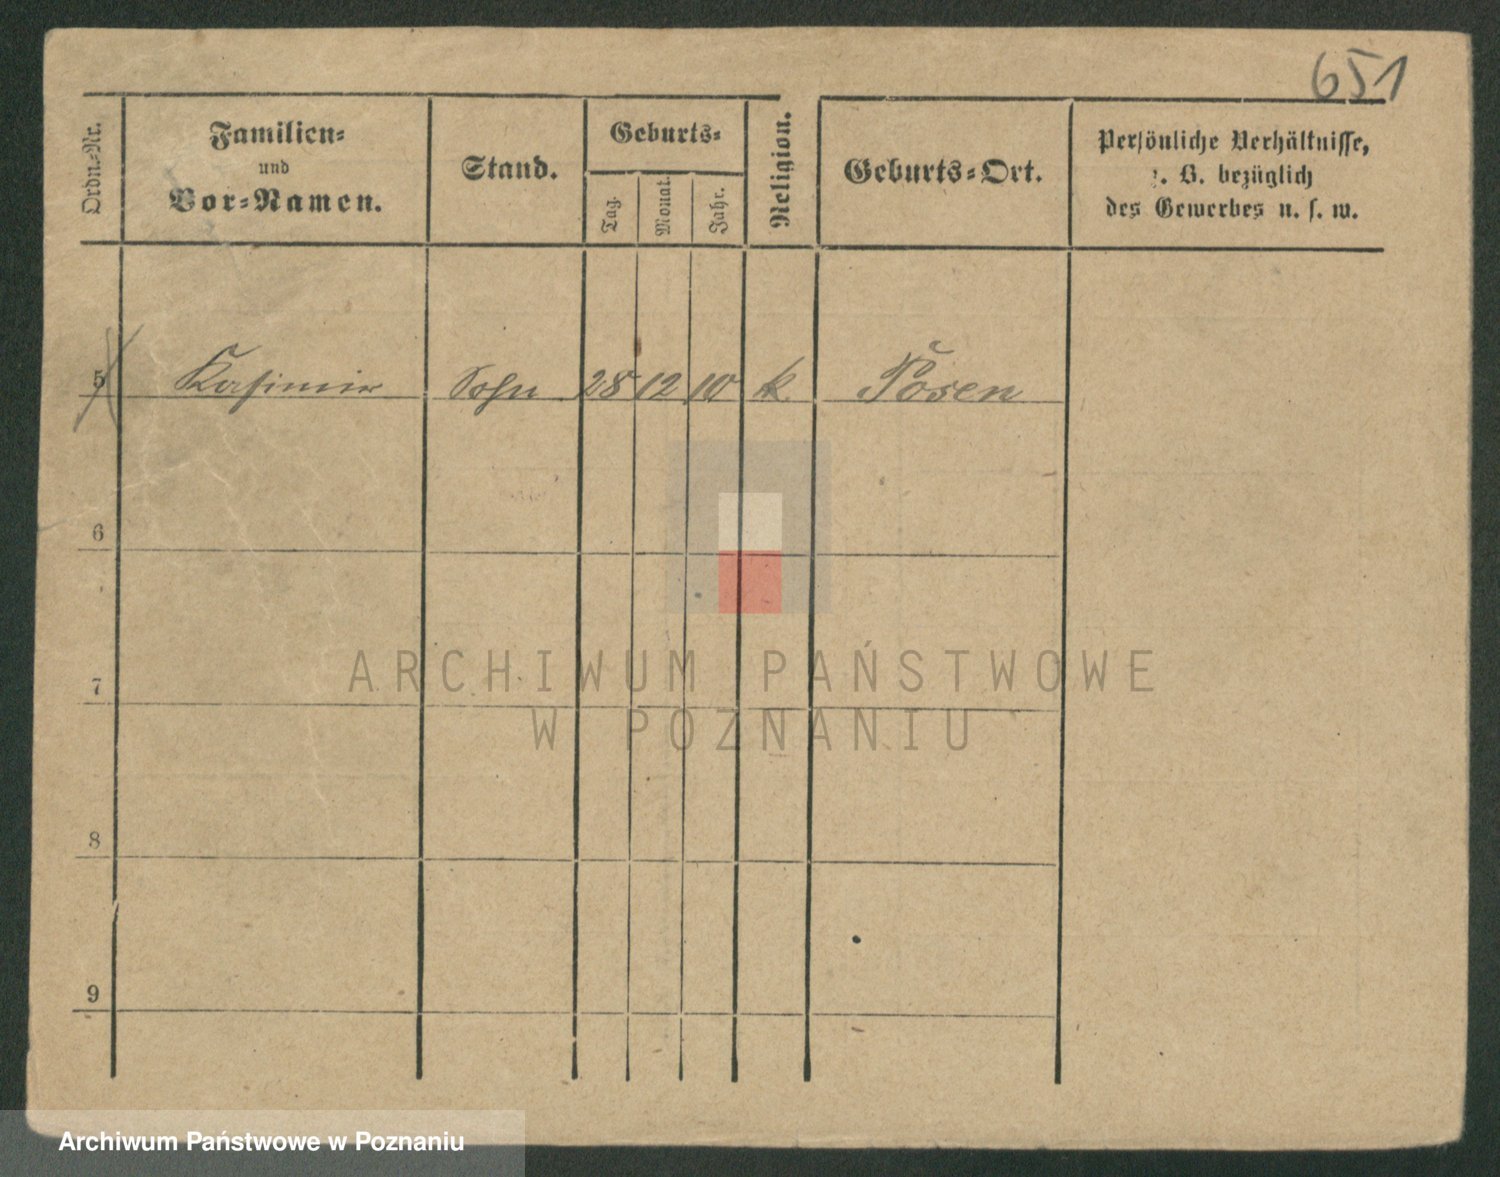 651
Ordn.-Nr.
Familien-
und
Vor-Namen.
Stand.
Geburts-
Tag.
Monat.
Jahr.
Religion.
Geburts-Ort.
Persönliche Verhältnisse,
z. B. bezüglich
des Gewerbes u. s. w.
5 Kasimir Sohn 28 12 10 k. Posen
6
7
8
9
ARCHIWUM PAŃSTWOWE
W POZNANIU
Archiwum Państwowe w Poznaniu